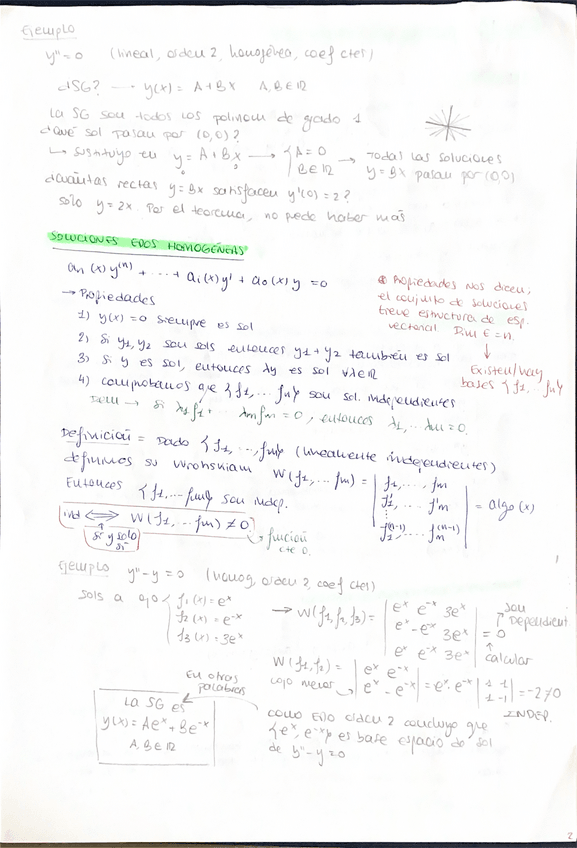 Ejemplo
y'' = 0 (lineal, orden 2, homogénea, coef ctes)
¿SG? → y(x) = A + Bx A, B ∈ ℝ
La SG son todos los polinom de grado 1
¿Qué sol pasan por (0,0)?
↳ sustituyo en y = A + Bx → { A = 0 B ∈ ℝ → Todas las soluciones
0 0
y = Bx pasan por (0,0)
¿Cuántas rectas y = Bx satisfacen y'(0) = 2?
Solo y = 2x. Por el teorema, no puede haber más
SOLUCIONES EDOS HOMOGÉNEAS
an(x) y^(n) + ... + a1(x) y' + a0(x) y = 0
→ Propiedades
1) y(x) = 0 siempre es sol
2) Si y1, y2 son sols entonces y1 + y2 también es sol
3) Si y es sol, entonces λy es sol ∀λ∈ℝ
4) comprobamos que {f1, ... fn} son sol. independientes
Dem → Si λ1f1 + ... λmfm = 0, entonces λ1, ... λm = 0.
Propiedades nos dicen;
el conjunto de soluciones
tiene estructura de esp.
vectorial Dim E = n.
↓
Existen/hay
bases {f1, ... fn}
Definición = Dado {f1, ..., fm} (linealmente independientes)
definimos su Wronskiam W(f1, ... fm) = | f1, ... fm |
| f'1 ... f'm |
| f1^(n-1) ... fm^(n-1) | = algo(x)
Entonces {f1, ... fm} son indep.
ind ⟺ W(f1, ... fm) ≠ 0
si y solo
si
función
cte 0.
Ejemplo y'' - y = 0 (homog, orden 2, coef ctes)
Sols a ojo { f1(x) = e^x
f2(x) = e^-x
f3(x) = 3e^x
→ W(f1, f2, f3) = | e^x e^-x 3e^x |
| e^x -e^-x 3e^x | = 0
| e^x e^-x 3e^x |
son
Dependient.
calcular
W(f1, f2) = | e^x e^-x |
cojo menor | e^x -e^-x | = e^x · e^-x | 1 1 |
| 1 -1 | = -2 ≠ 0
INDEP.
En otras
palabras
La SG es
y(x) = Ae^x + Be^-x
A, B ∈ ℝ
como EDO orden 2 concluyo que
{e^x, e^-x} es base espacio de sol
de y'' - y = 0
2